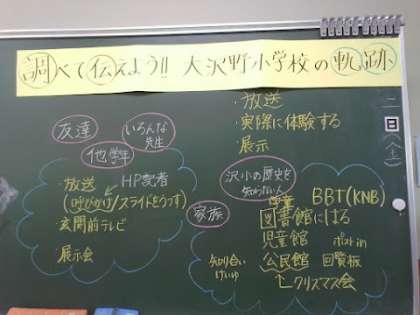 調べて伝えよう!! 大沢野小学校の軌跡
・放送
・実際に体験する
・展示
二日(土)
友達
いろんな先生
他学年
・放送 HP記者
(呼びかけ/スライドをうつす)
玄関前テレビ
展示会
沢小の歴史を知らない人
家族
BBT(KNB)
図書館にはる
児童館 ポストin
公民館 回覧板
クリスマス会
知り合い